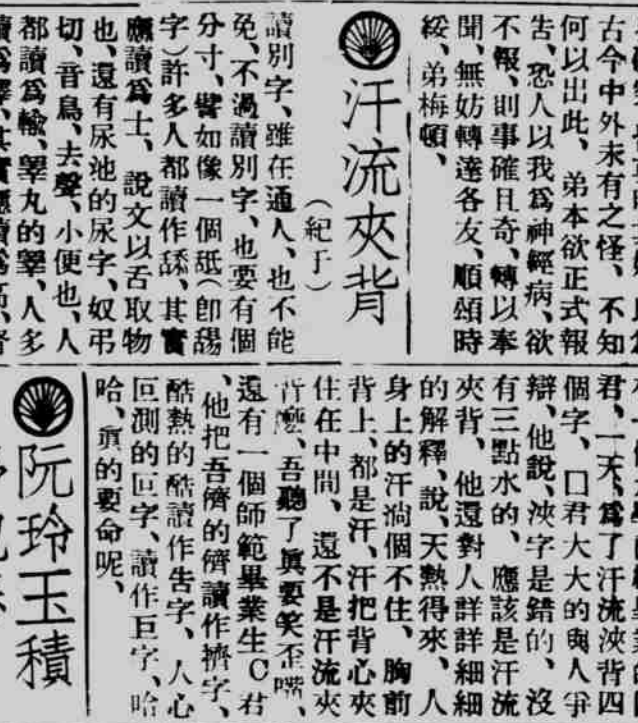 古今中外未有之怪、不知
何以出此、弟本欲正式報
吿、恐人以我爲神經病、欲
不報、則事確且奇、轉以奉
聞、無妨轉達各友、順頌時
綏、弟梅頓、
汗流夾背
（紀于）
讀別字、雖在通人、也不能
免、不過讀別字、也要有個
分寸、譬如像一個舐（卽䑛
字）許多人都讀作舔、其實
應讀爲士、說文以舌取物
也、還有尿池的尿字、奴弔
切、音鳥、去聲、小便也、人
都讀爲輸、睪丸的睪、人多
君、一天、爲了汗流浹背四
個字、口君大大的與人爭
辯、他說、浹字是錯的、沒
有三點水的、應該是汗流
夾背、他還對人詳詳細細
的解釋、說、天熱得來、人
身上的汗淌個不住、胸前
背上、都是汗、汗把背心夾
住在中間、還不是汗流夾
背麽、吾聽了眞要笑歪嘴、
還有一個師範畢業生C君
、他把吾儕的儕讀作擠字、
酷熱的酷讀作吿字、人心
叵測的叵字、讀作巨字、哈
哈、眞的要命呢、
阮玲玉積